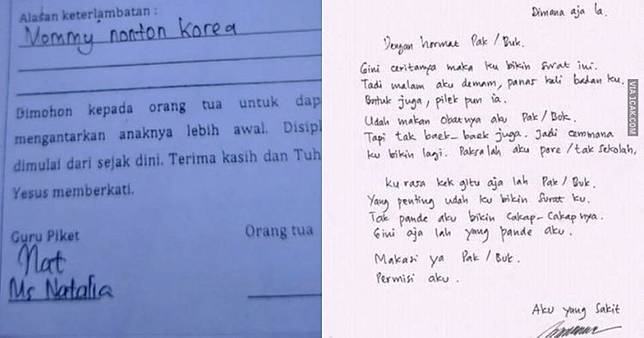 Alasan keterlambatan :
Mommy nonton Korea
Dimohon kepada orang tua untuk dap
mengantarkan anaknya lebih awal. Disipl
dimulai dari sejak dini. Terima kasih dan Tuh
Yesus memberkati.
Guru Piket
Orang tua
Nat
Ms Natalia
Dimana aja la.
Dengan hormat Pak / Buk.
Gini ceritanya maka ku bikin surat ini.
Tadi malam aku demam, panas kali badan ku.
Batuk juga, pilek pun ia.
Udah makan obatnya aku Pak / Buk.
Tapi tak baek-baek juga. Jadi cemmana
ku bikin lagi. Paksa lah aku pere / tak sekolah.
Ku rasa kek gitu aja lah Pak / Buk.
Yang penting udah ku bikin surat ku.
Tak pande aku bikin cakap-cakapnya.
Gini aja lah yang pande aku.
Makasi ya Pak / Buk.
Permisi aku.
Aku yang Sakit
VIA 1CAK.COM